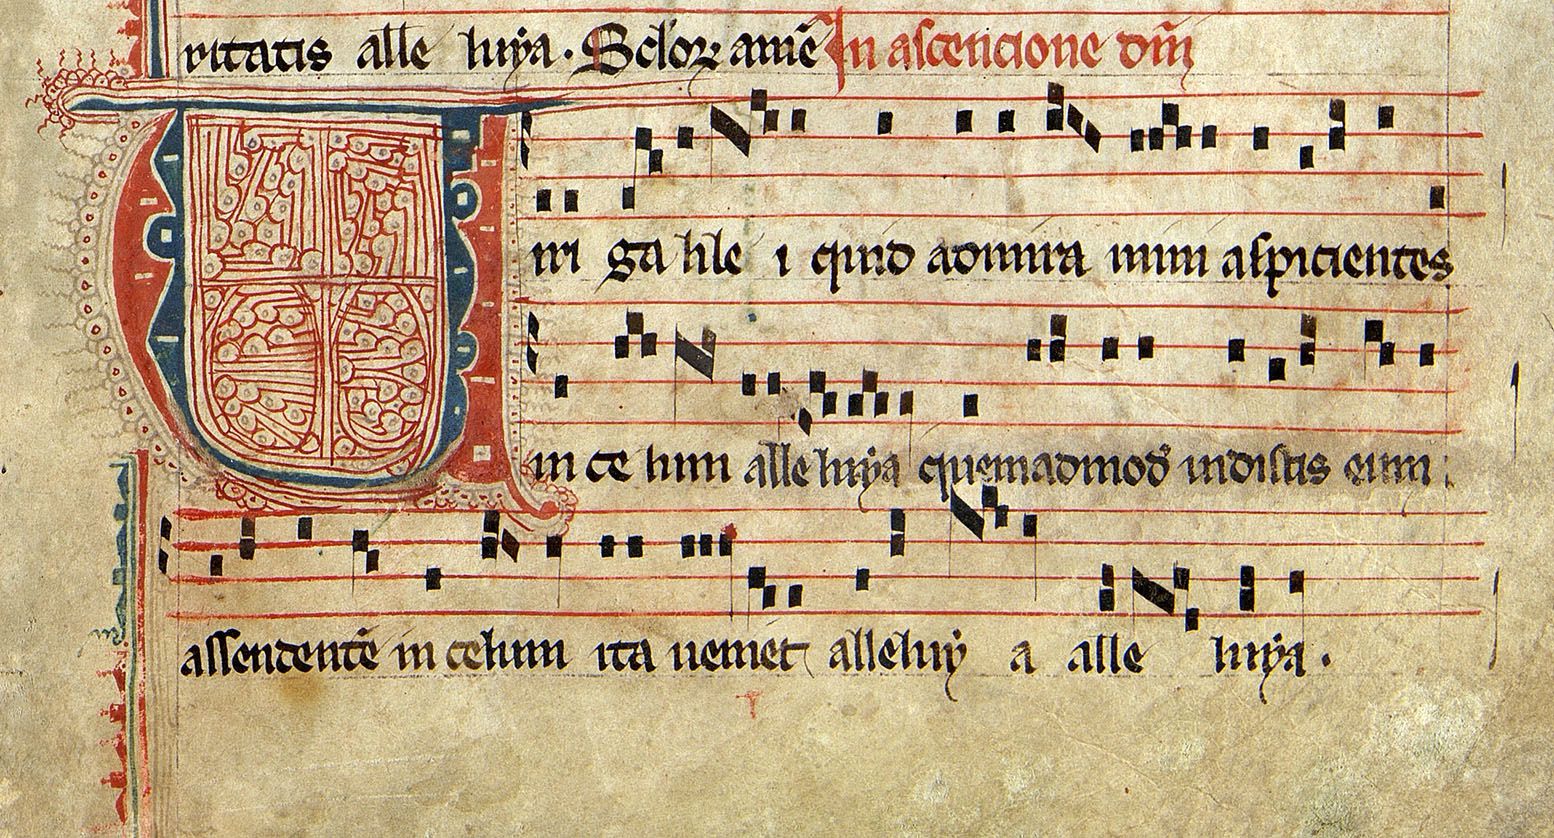 uitatis alle luya. Sclor amē In ascencione dm̄
Viri galile i quid admira mini aspicientes
in ce lum alle luya quemadmod uidistis eum
assendentē in celum ita ueniet alleluy a alle luya.